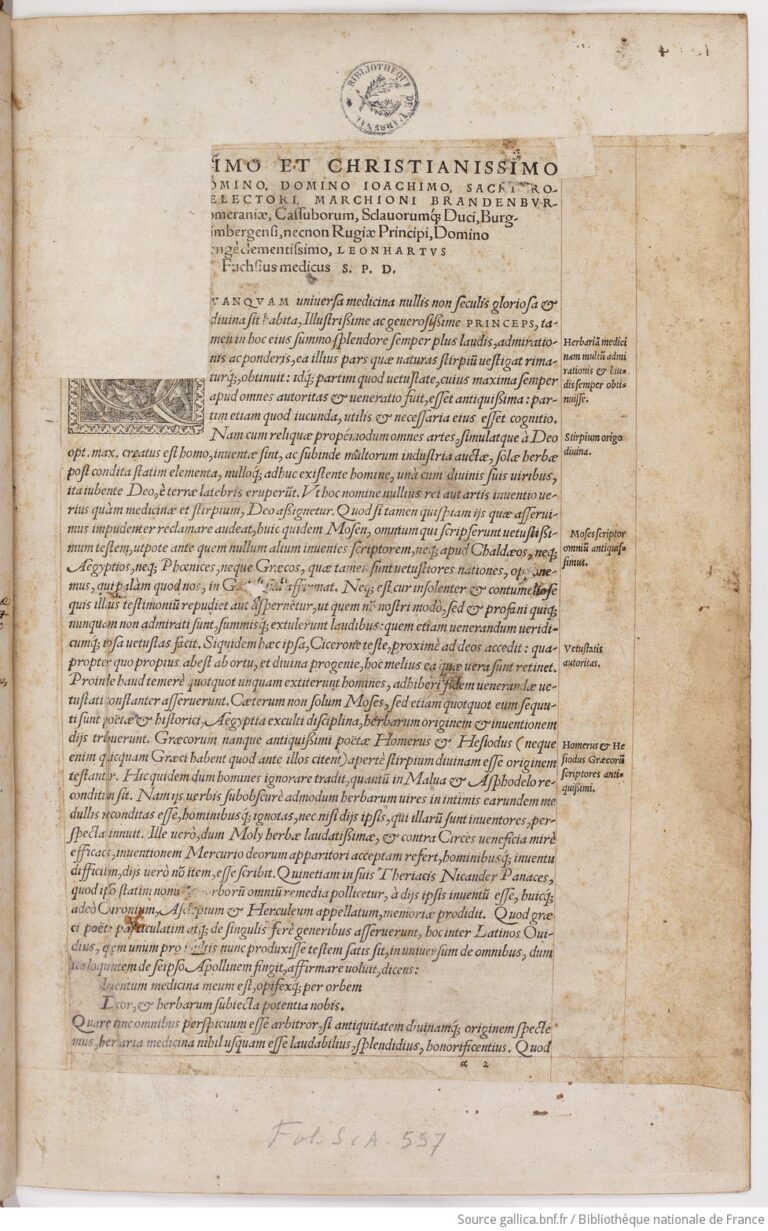 BIBLIOTHEQUE DE L'ARSENAL
IMO ET CHRISTIANISSIMO
OMINO, DOMINO IOACHIMO, SACRI RO-
ELECTORI, MARCHIONI BRANDENBVR-
omeraniæ, Cassuborum, Sclauorumq́; Duci, Burg-
imbergensi, necnon Rugiæ Principi, Domino
clementissimo, LEONHARTVS
Fuchsius medicus S. P. D.
VANQVAM uniuersa medicina nullis non seculis gloriosa &
diuina sit habita, Illustrißime ac generosißime PRINCEPS, ta-
men in hoc eius summo splendore semper plus laudis, admiratio-
nis ac ponderis, ea illius pars quæ naturas stirpiū uestigat rima-
turq́;, obtinuit: idq́; partim quod uetustate, cuius maxima semper
apud omnes autoritas & ueneratio fuit, esset antiquißima: par-
tim etiam quod iucunda, utilis & necessaria eius esset cognitio.
Nam cum reliquæ propemodum omnes artes, simulatque à Deo
opt. max. creatus est homo, inuentæ sint, ac subinde multorum industria auctæ, solæ herbæ
post condita statim elementa, nulloq́; adhuc existente homine, unà cum diuinis suis uiribus,
ita iubente Deo, è terræ latebris eruperūt. Vt hoc nomine nullius rei aut artis inuentio ue-
rius quàm medicinæ et stirpium, Deo aßignetur. Quod si tamen quispiam ijs quæ asserui-
mus impudenter reclamare audeat, huic quidem Mosen, omnium qui scripserunt uetustißi-
mum testem, utpote ante quem nullum alium inuenies scriptorem, neq́; apud Chaldæos, neq́;
Aegyptios, neq́; Phœnices, neque Græcos, quæ tamen sunt uetustiores nationes,
mus, qui palàm quod nos, in affirmat. Neq́; est cur insolenter & contumeliose
quis illius testimoniū repudiet aut aspernetur, ut quem nō nostri modo, sed & profani quiq́;
nunquam non admirati sunt, summisq́; extulerunt laudibus: quem etiam uenerandum ueridi-
cumq́; ipsa uetustas facit. Siquidem hæc ipsa, Cicerone teste, proximè ad deos accedit: qua-
propter quo propius abest ab ortu, et diuina progenie, hoc melius ea quæ uera sunt retinet.
Proinde haud temerè quotquot unquam extiterunt homines, adhiberi fidem uenerandæ ue-
tustati constanter asseruerunt. Cæterum non solum Moses, sed etiam quotquot eum sequu-
ti sunt poëtæ & historici, Aegyptia exculti disciplina, herbarum originem & inuentionem
dijs tribuerunt. Græcorum nanque antiquißimi poëtæ Homerus & Hesiodus (neque
enim quicquam Græci habent quod ante illos citent) apertè stirpium diuinam esse originem
testantur. Hic quidem dum homines ignorare tradit, quantū in Malua & Asphodelo re-
conditum sit. Nam ijs uerbis subobscurè admodum herbarum uires in intimis earundem me
dullis reconditas esse, hominibusq́; ignotas, nec nisi dijs ipsis, qui illarū sunt inuentores, per-
specta innuit. Ille uerò, dum Moly herbæ laudatißimæ, & contra Circes ueneficia mirè
efficacis, inuentionem Mercurio deorum apparitori acceptam refert, hominibusq́; inuentu
difficilem, dijs uerò nō item, esse scribit. Quinetiam in suis Theriacis Nicander Panaces,
quod ipso statim nomine morborū omniū remedia pollicetur, à dijs ipsis inuentū esse, huicq́;
adeò Cironium, Asclepium & Herculeum appellatum, memoriæ prodidit. Quod græ
ci poëtæ particulatim atq́; de singulis ferè generibus asseruerunt, hoc inter Latinos Oui-
dius, quem unum pro multis nunc produxisse testem satis sit, in uniuersum de omnibus, dum
ita loquentem de seipso Apollinem fingit, affirmare uoluit, dicens:
Inuentum medicina meum est, opifexq́; per orbem
Dicor, & herbarum subiecta potentia nobis.
Quare nunc omnibus perspicuum esse arbitror, si antiquitatem diuinamq́; originem specte
mus, herbaria medicina nihil usquam esse laudabilius, splendidius, honorificentius. Quod
a 2
Herbariā medici
nam multū admi
rationis & lau-
dis semper obti-
nuisse.
Stirpium origo
diuina.
Moses scriptor
omniū antiquis-
simus.
Vetustatis
autoritas.
Homerus & He
siodus Græcorū
scriptores anti-
quißimi.
Fol. Sc A. 557
Source gallica.bnf.fr / Bibliothèque nationale de France